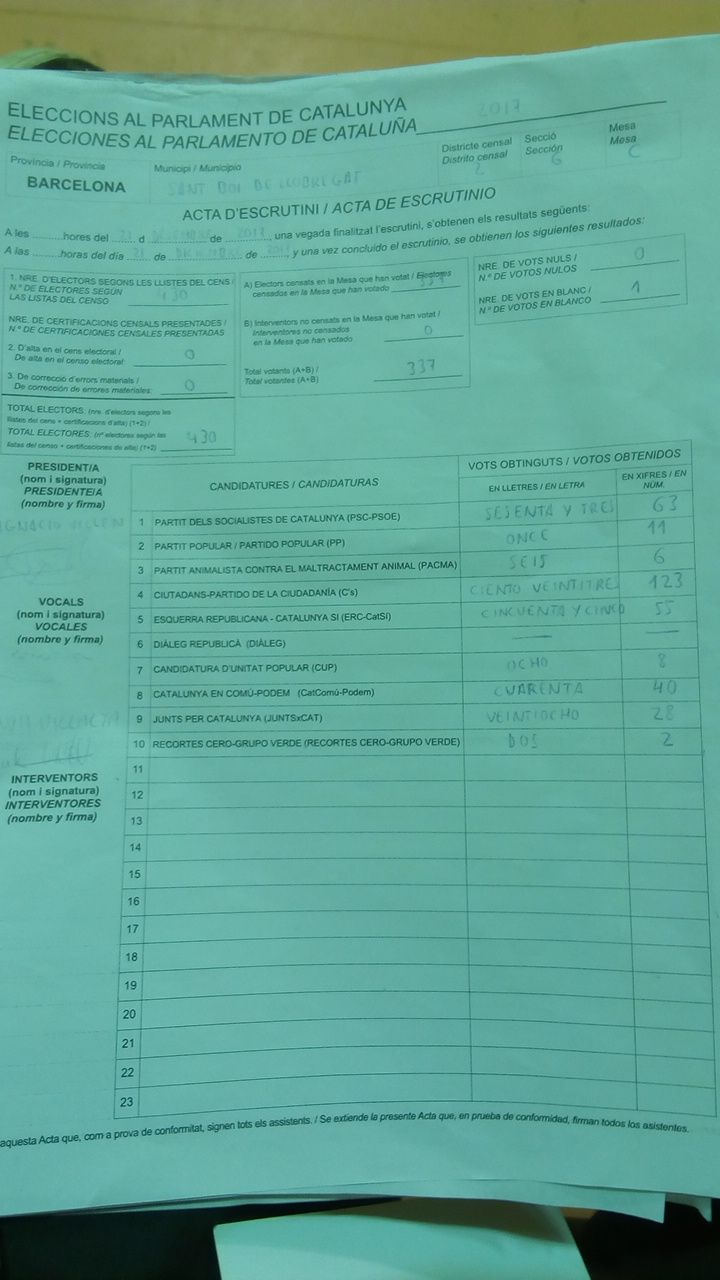 ELECCIONS AL PARLAMENT DE CATALUNYA 2017
ELECCIONES AL PARLAMENTO DE CATALUÑA
Província / Provincia
BARCELONA
Municipi / Municipio
SANT BOI DE LLOBREGAT
Districte censal
Distrito censal
2
Secció
Sección
6
Mesa
Mesa
C
ACTA D'ESCRUTINI / ACTA DE ESCRUTINIO
A les ........hores del 21 d DICIEMBRE de 2017, una vegada finalitzat l'escrutini, s'obtenen els resultats següents:
A las ........horas del día 21 de DICIEMBRE de 2017, y una vez concluido el escrutinio, se obtienen los siguientes resultados:
1. NRE. D'ELECTORS SEGONS LES LLISTES DEL CENS /
N.º DE ELECTORES SEGÚN
LAS LISTAS DEL CENSO
430
NRE. DE CERTIFICACIONS CENSALS PRESENTADES /
N.º DE CERTIFICACIONES CENSALES PRESENTADAS
2. D'alta en el cens electoral /
De alta en el censo electoral: 0
3. De correcció d'errors materials /
De corrección de errores materiales: 0
TOTAL ELECTORS. (nre. d'electors segons les
llistes del cens + certificacions d'alta) (1+2) /
TOTAL ELECTORES: (nº electores según las
listas del censo + certificaciones de alta) (1+2) 430
A) Electors censats en la Mesa que han votat / Electores
censados en la Mesa que han votado 337
B) Interventors no censats en la Mesa que han votat /
Interventores no censados
en la Mesa que han votado 0
Total votants (A+B) /
Total votantes (A+B) 337
NRE. DE VOTS NULS /
N.º DE VOTOS NULOS 0
NRE. DE VOTS EN BLANC /
N.º DE VOTOS EN BLANCO 1
PRESIDENT/A
(nom i signatura)
PRESIDENTE/A
(nombre y firma)
VOCALS
(nom i signatura)
VOCALES
(nombre y firma)
INTERVENTORS
(nom i signatura)
INTERVENTORES
(nombre y firma)
CANDIDATURES / CANDIDATURAS
VOTS OBTINGUTS / VOTOS OBTENIDOS
EN LLETRES / EN LETRA
EN XIFRES / EN
NÚM.
1 PARTIT DELS SOCIALISTES DE CATALUNYA (PSC-PSOE) SESENTA Y TRES 63
2 PARTIT POPULAR / PARTIDO POPULAR (PP) ONCE 11
3 PARTIT ANIMALISTA CONTRA EL MALTRACTAMENT ANIMAL (PACMA) SEIS 6
4 CIUTADANS-PARTIDO DE LA CIUDADANÍA (C's) CIENTO VEINTITRES 123
5 ESQUERRA REPUBLICANA - CATALUNYA SÍ (ERC-CatSí) CINCUENTA Y CINCO 55
6 DIÀLEG REPUBLICÀ (DIÀLEG) — —
7 CANDIDATURA D'UNITAT POPULAR (CUP) OCHO 8
8 CATALUNYA EN COMÚ-PODEM (CatComú-Podem) CUARENTA 40
9 JUNTS PER CATALUNYA (JUNTSxCAT) VEINTIOCHO 28
10 RECORTES CERO-GRUPO VERDE (RECORTES CERO-GRUPO VERDE) DOS 2
11
12
13
14
15
16
17
18
19
20
21
22
23
aquesta Acta que, com a prova de conformitat, signen tots els assistents. / Se extiende la presente Acta que, en prueba de conformidad, firman todos los asistentes.